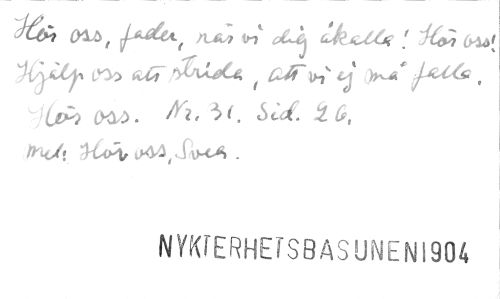 Hör oss, fader, när vi dig åkalla! Hör oss!
Hjälp oss att strida, att vi ej må falla.
Hör oss. Nr. 31. Sid. 26.
mel: Hör oss, Svea.
NYKTERHETSBASUNEN1904